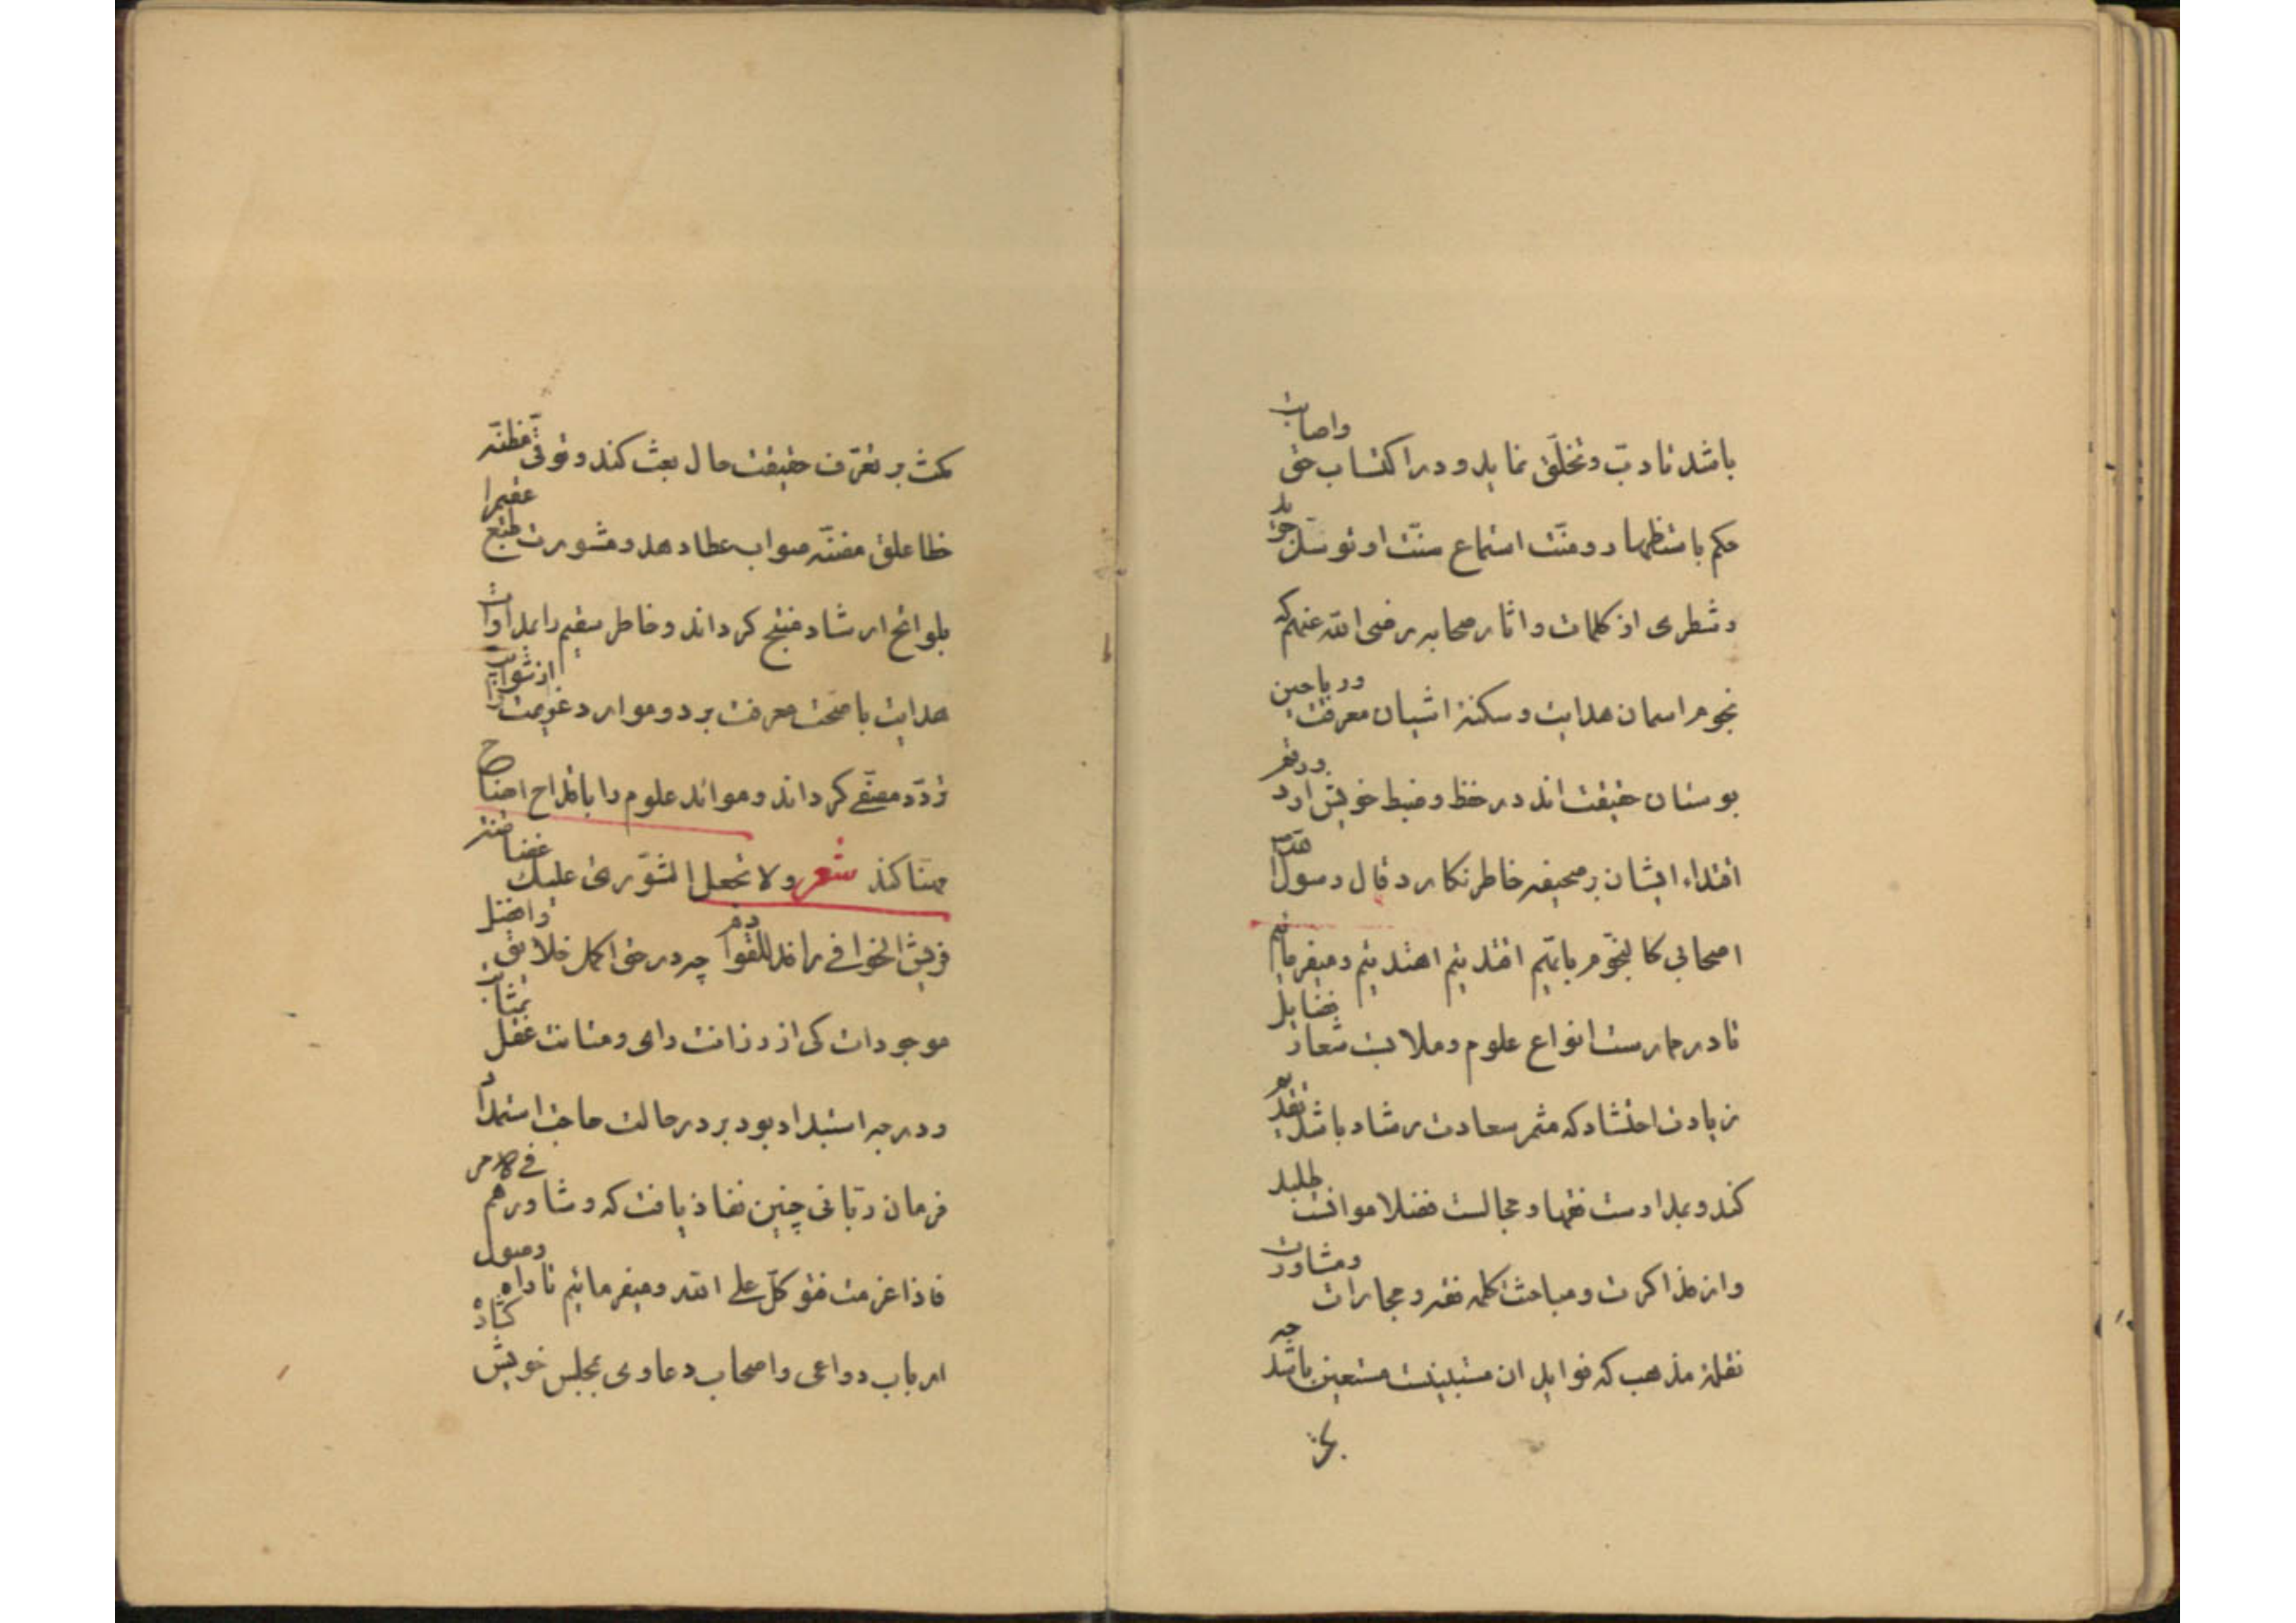 باشد تادب و تخلق نماید و در اکتساب حق واصابت
حکم باستظهار و منت استماع سنت او توسل جوید
و شطری از کلمات و اثار صحابه رضی الله عنهم که
نجوم اسمان هدایت و سکنه اشیان معرفت و ریاحین
بوستان حقیقت اند در حفظ و ضبط خویش ارد و رقم
اقتداء ایشان بر صحیفه خاطر نکارد قال رسول الله
اصحابی کالنجوم بایهم اقتدیتم اهتدیتم و میفرمایم
تا در ممارست انواع علوم و ملابست شعار فضایل
زیادت احتشاد که مثمر سعادت رشاد باشد تقدیم
کند و بمداومت فقها و مجالست فضلا موانست طلبد
و از مذاکرت و مباحث کلمه فقه و مجارات و مشاورت
نقله مذهب که فواید ان مستبینست مستعین باشد چه
مکث بر تعرف حقیقت حال بعث کند و توقی مظنه
خطا علق مضنه صواب عطا دهد و مشورت طبع عقیم را
بلوائح ارشاد منتج کرداند و خاطر سقیم را بمداوات
هدایت با صحت معرفت برد و موارد عزیمت را از شوایب
تردد مصفی کرداند و مواند علوم را باقداح اصناح
مهنا کند شعر ولا تجعل الشوری علیک غضاضة
فریش الخوافی رافد للقوادم چه در حق اکمل خلایق و افضل
موجودات کی از رزانت رای و متانت عقل بمثابت
و درجه استبداد بود بر در حالت حاجت استمداد
فرمان ربانی چنین نفاذ یافت که و شاورهم فی الامر
فاذا عزمت فتوکل علی الله و میفرمائیم تا راه وصول
ارباب دواعی و اصحاب دعاوی بمجلس خویش کشاده